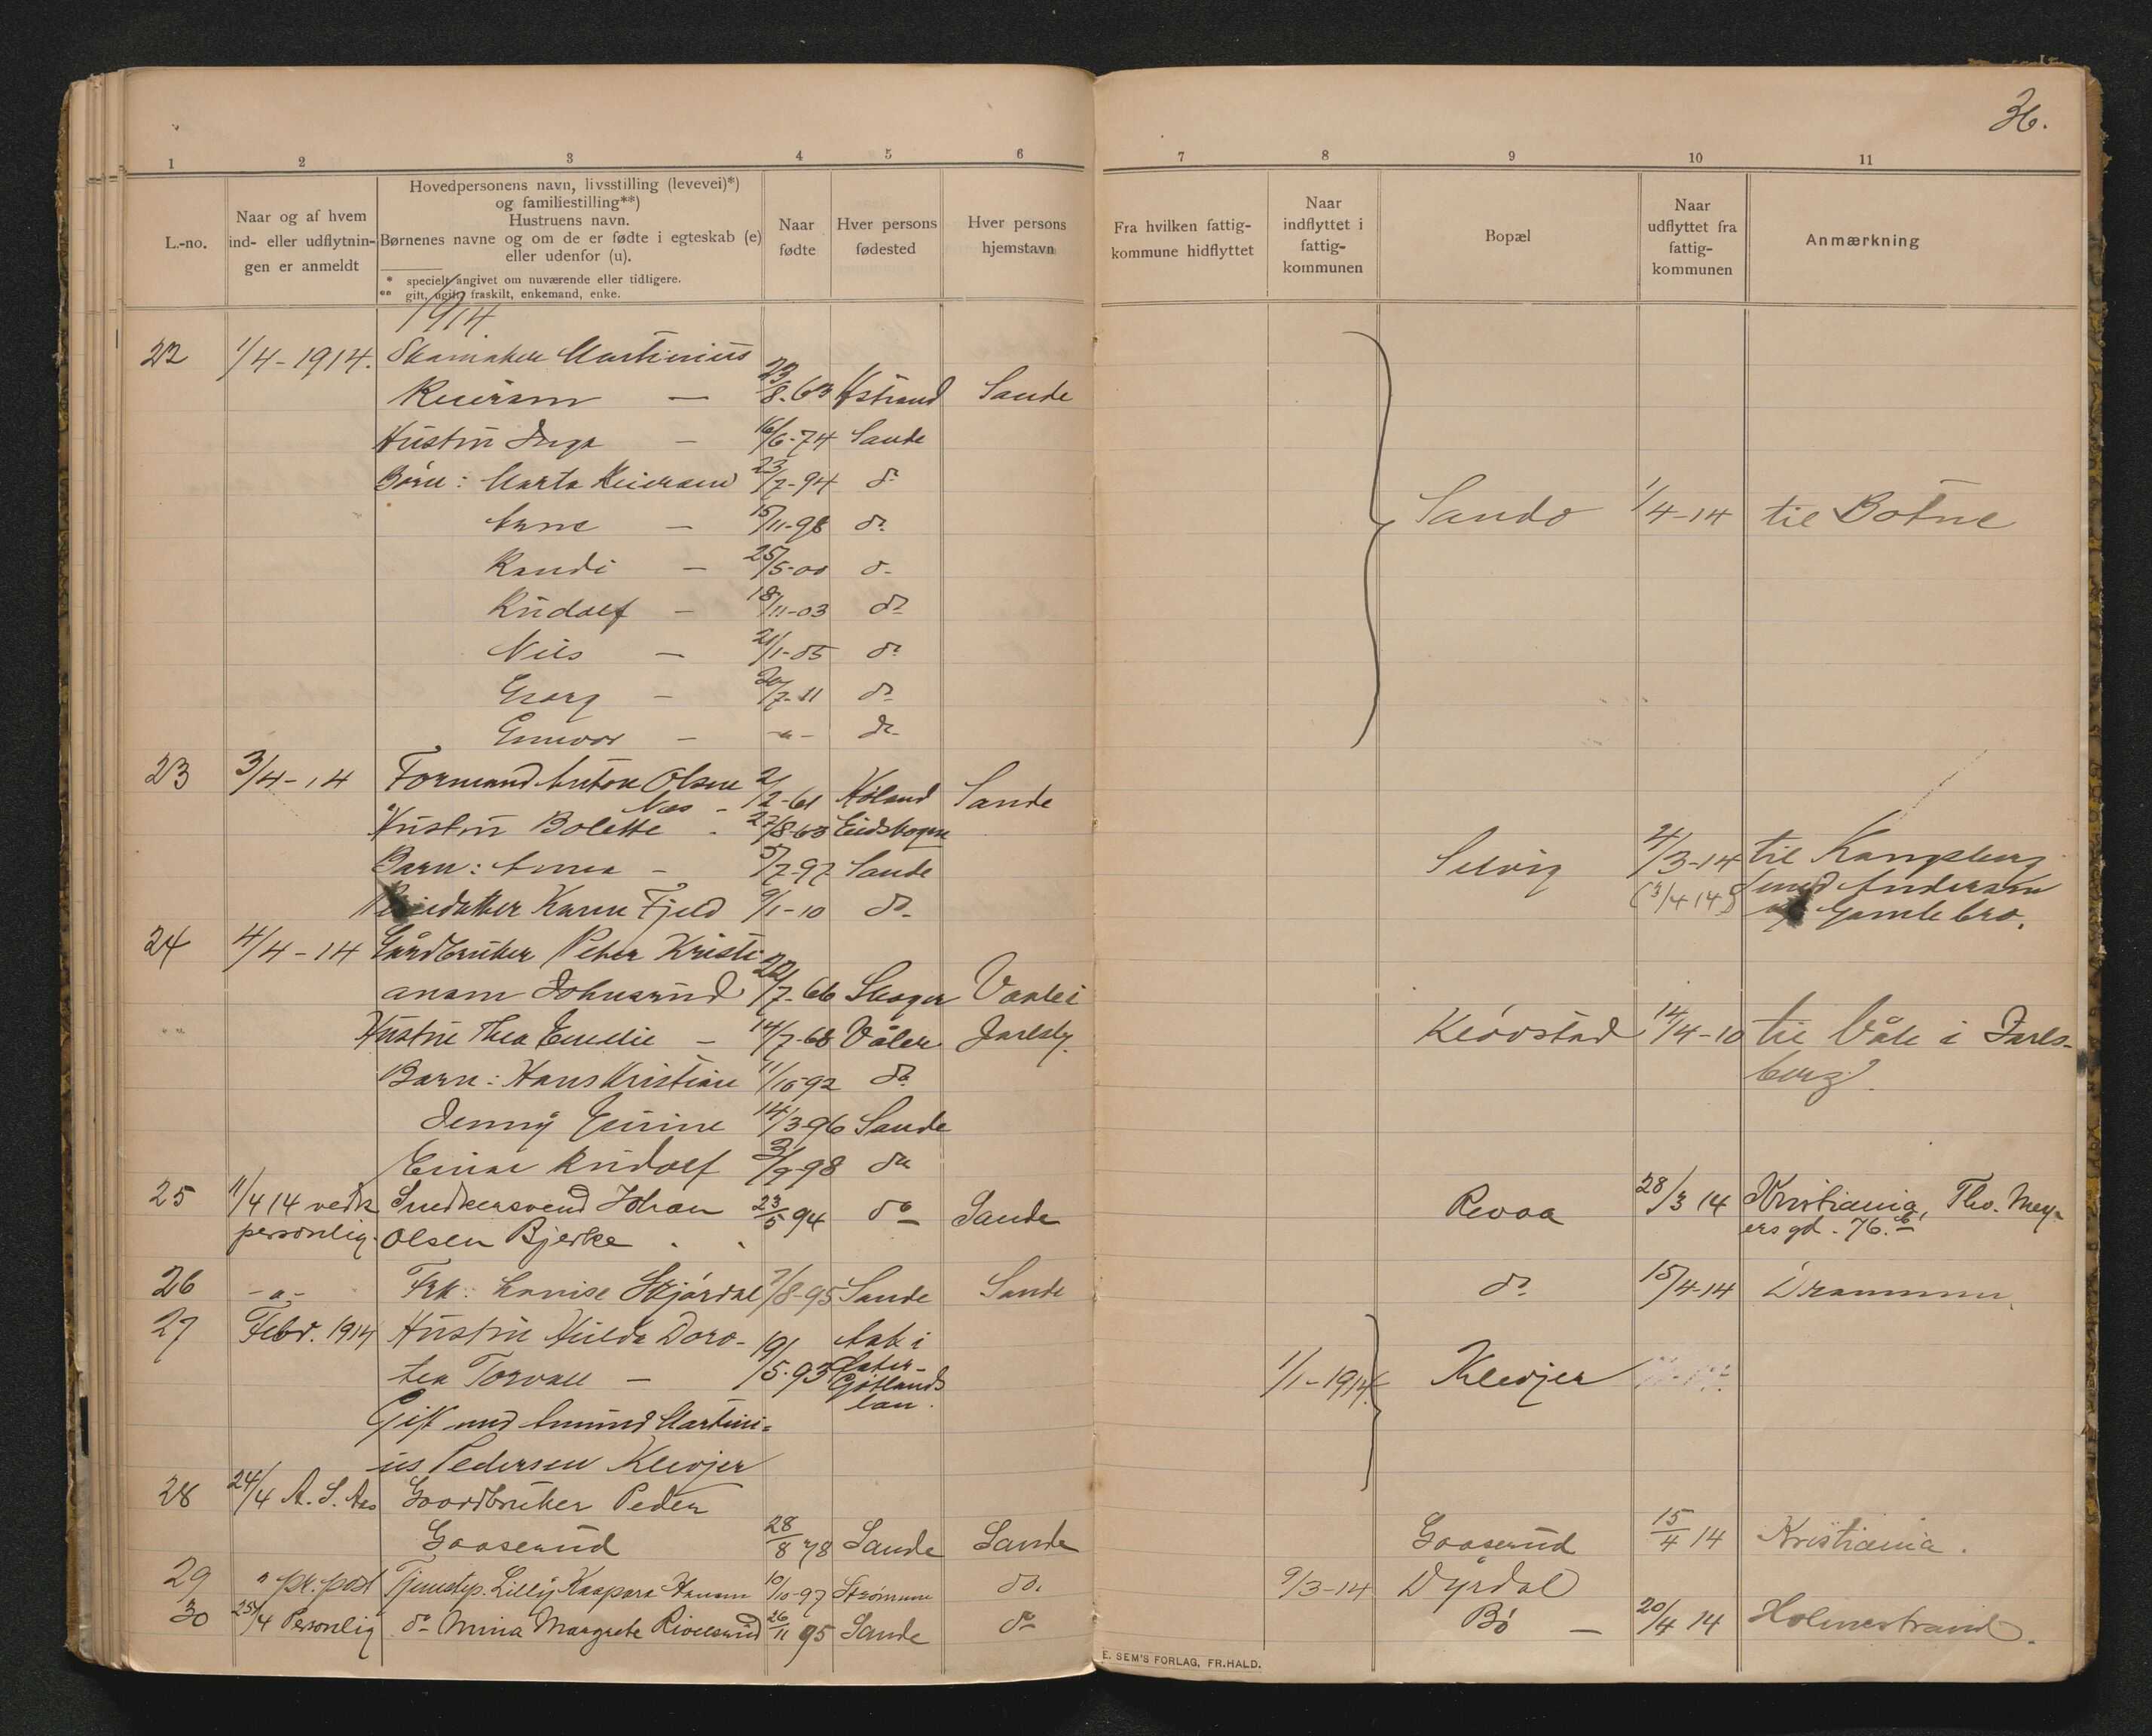 36.
1 2 3 4 5 6 7 8 9 10 11
L.-no.
Naar og af hvem
ind- eller udflytnin-
gen er anmeldt
Hovedpersonens navn, livsstilling (levevei)*)
og familiestilling**)
Hustruens navn.
Børnenes navne og om de er fødte i egteskab (e)
eller udenfor (u).
* specielt angivet om nuværende eller tidligere.
** gift, ugift, fraskilt, enkemand, enke.
Naar
fødte
Hver persons
fødested
Hver persons
hjemstavn
Fra hvilken fattig-
kommune hidflyttet
Naar
indflyttet i
fattig-
kommunen
Bopæl
Naar
udflyttet fra
fattig-
kommunen
Anmærkning
1914.
22 1/4-1914. Skomaker Martinius
Reiersen — 23/8-63 Hstrand Sande
Hustru Inga — 16/6-74 Sande
Børn: Marta Reiersen 23/7-94 do
Arne — 15/11-98 do
Sande 1/4-14 til Botne
Randi — 25/5-00 do
Rudolf — 18/11-03 do
Nils — 21/1-05 do
Georg — 20/7-11 do
Gunvor — -"- do
23 3/4-14 Formand Anton Olsen
Næs - 2/2-61 Høland Sande
Hustru Bolette - 27/8-63 Eidskogen
Barn: Anna - 5/7-97 Sande
Selvig 2/3-14 til Kongsberg
Pleiedatter Karen Fjeld 9/1-10 do
(3/4 14) Smed Andersen
Gamlebro.
24 4/4-14 Gårdbruker Peter Kristi
ansen Johnsrud 22/7-66 Skoger Vaale i
Hustru Thea Emelie — 14/7-68 Våler Jarlsbg.
Kløvstad 14/4-10 til Våle i Jarls-
berg.
Barn: Hans Kristian 11/10-92 do
Jenny Gurine 14/3-96 Sande
Einar Rudolf 3/9-98 do
25 11/4 14 vedk Snedkersvend Johan 23/5 94 do Sande
personlig. Olsen Bjerke
Revaa 28/3 14 Kristiania, Tho. Mey-
ers gd. 76.
26 -"- Frk: Louise Skjørdal 7/8-95 Sande Sande
do 15/4-14 Drammen.
27 Febr. 1914 Hustru Hulda Doro-
tea Torvall — 19/5-93
Gift med Amund Martini-
us Pedersen Klevjer
1/1-1914 Klevjer
28 24/4 A. S. Aas Gaardbruker Peder
Gaaserud 28/8 78 Sande Sande
Gaaserud 15/4 14 Kristiania.
29 " pr. post Tjenestep. Lilly Kaspara Hansen 10/10-97 Strømmen do.
9/3-14 Dyrdal
30 25/4 Personlig do Mina Margrete Rivelsrud 26/11 95 Sande do
Bø — 20/4 14 Holmestrand.
E. SEM'S FORLAG, FR.HALD.